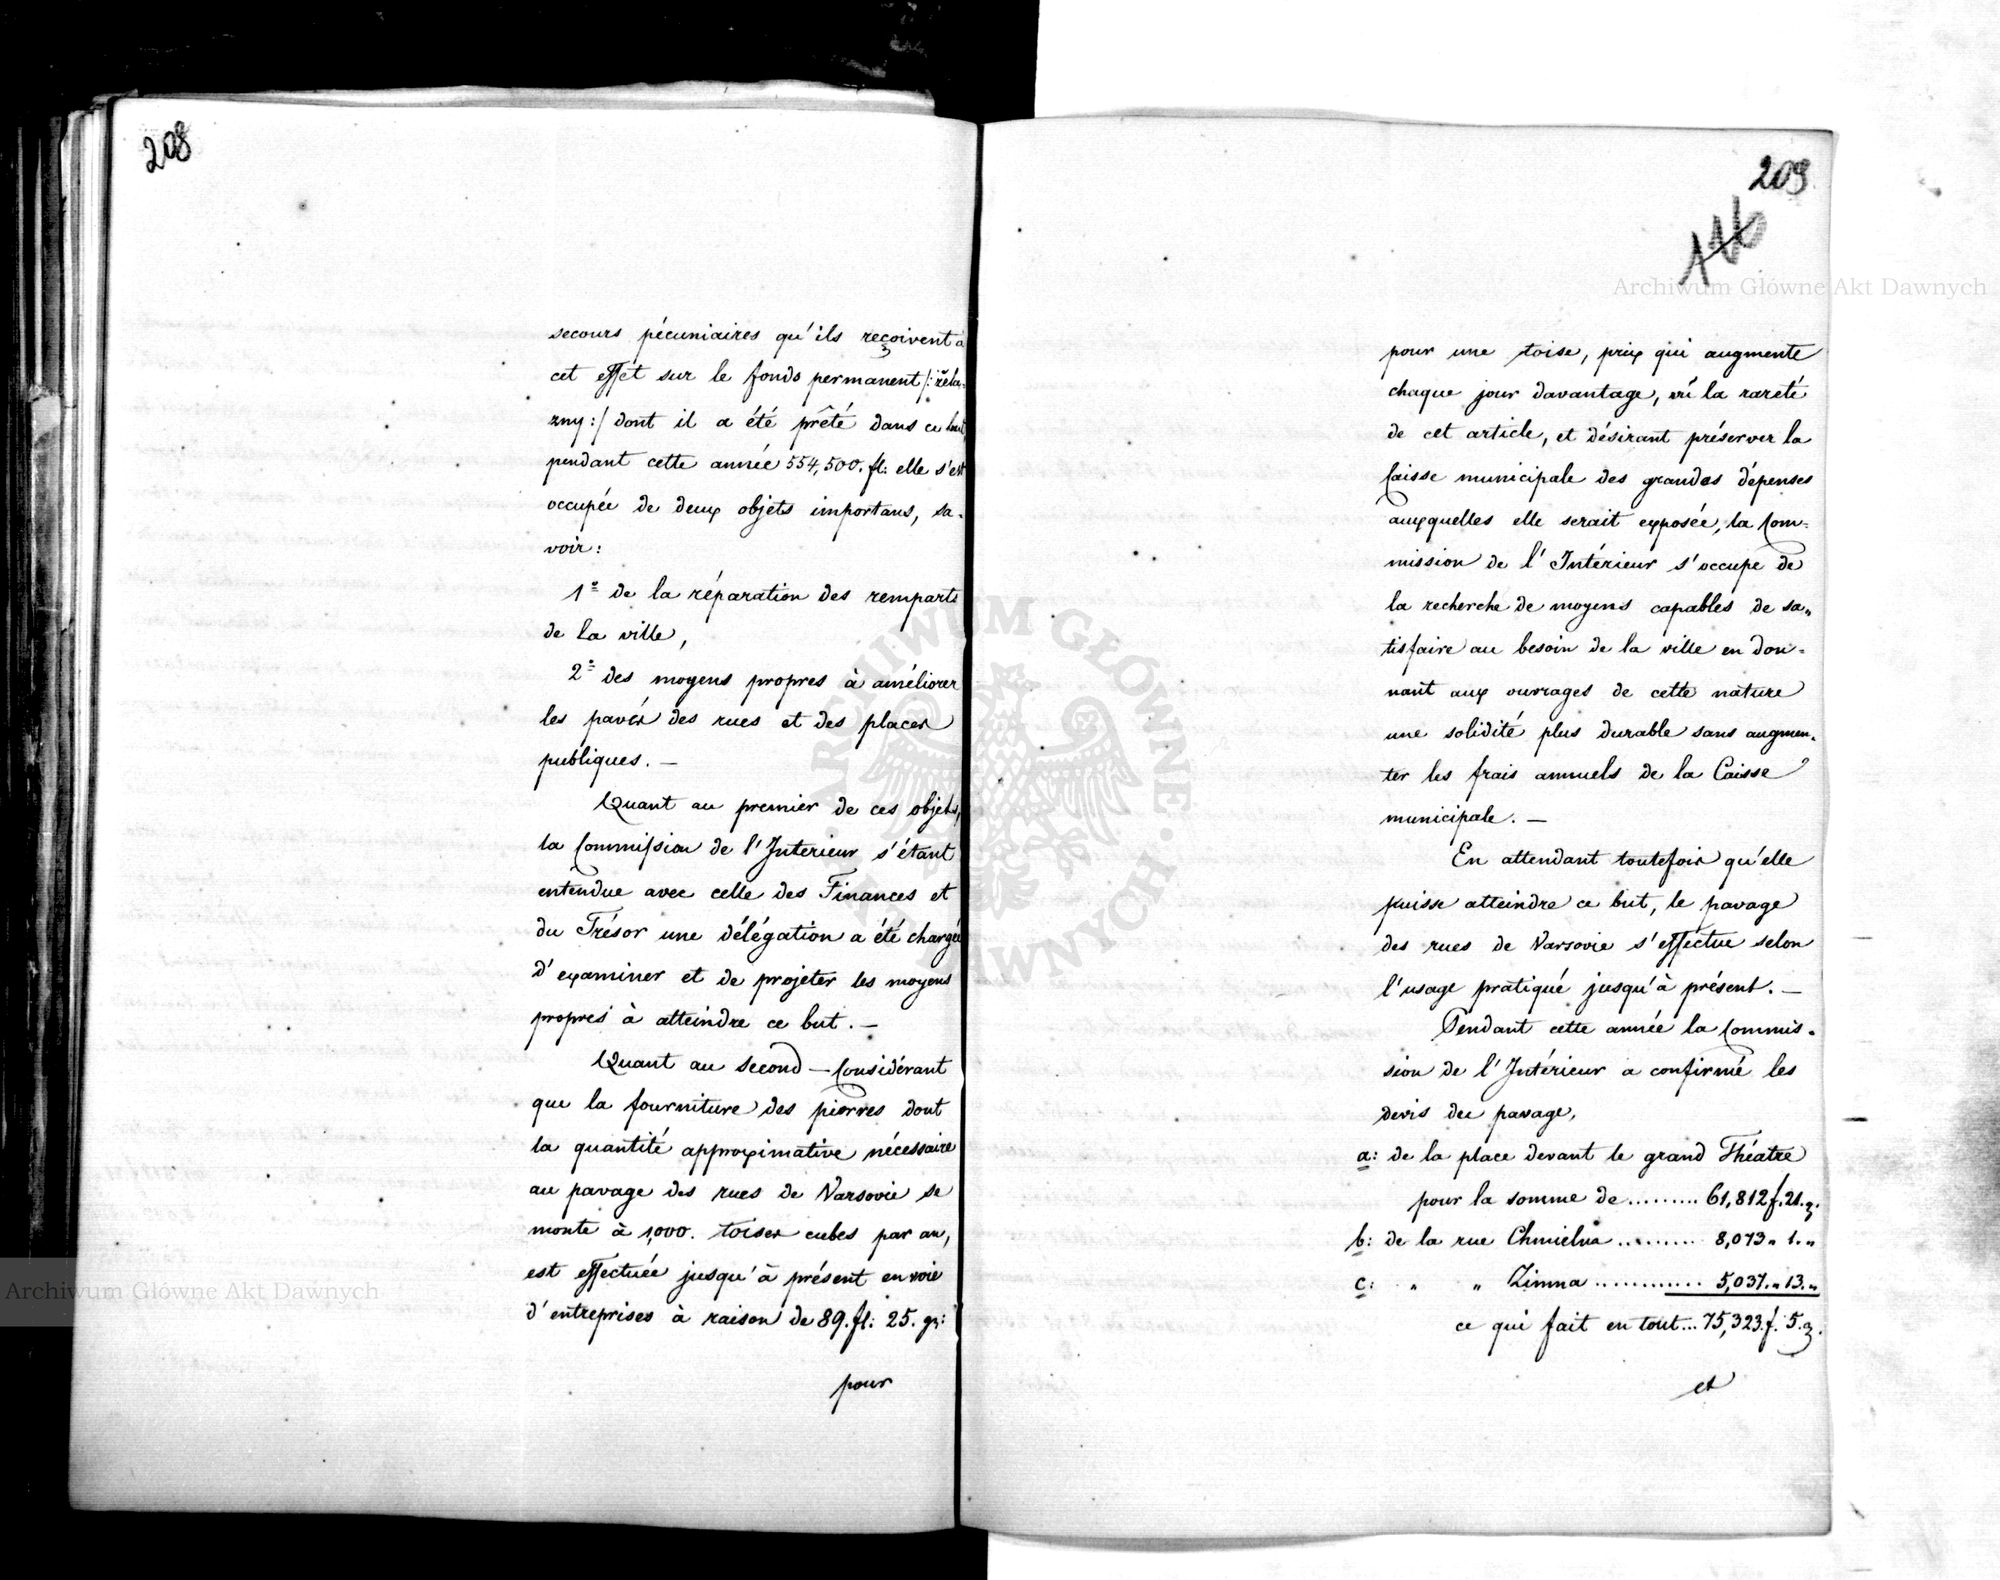 208
secours pécuniaires qu'ils reçoivent à
cet effet sur le fonds permanent /: żela-
zny :/ dont il a été prêté dans ce but
pendant cette année 554,500. fl: elle s'est
occupée de deux objets importans, sa-
voir:
1º de la réparation des remparts
de la ville,
2º des moyens propres à améliorer
les pavés des rues et des places
publiques. —
Quant au premier de ces objets,
la Commission de l'Interieur s'étant
entendue avec celle des Finances et
du Trésor une délégation a été chargée
d'examiner et de projeter les moyens
propres à atteindre ce but. —
Quant au second — Considérant
que la fourniture des pierres dont
la quantité approximative nécessaire
au pavage des rues de Varsovie se
monte à 1,000. toises cubes par an,
est effectuée jusqu'à présent en voie
d'entreprises à raison de 89. fl: 25. gr:
pour
209
pour une toise, prix qui augmente
chaque jour davantage, vû la rareté
de cet article, et désirant préserver la
Caisse municipale des grandes dépenses
auxquelles elle serait exposée, la Com-
mission de l'Intérieur s'occupe de
la recherche de moyens capables de sa-
tisfaire au besoin de la ville en don-
nant aux ouvrages de cette nature
une solidité plus durable sans augmen-
ter les frais annuels de la Caisse
municipale. —
En attendant toutefois qu'elle
puisse atteindre ce but, le pavage
des rues de Varsovie s'effectue selon
l'usage pratiqué jusqu'à présent. —
Pendant cette année la Commis-
sion de l'Intérieur a confirmé les
devis du pavage,
a: de la place devant le grand Théatre
pour la somme de ......... 61,812 f. 21. g.
b: de la rue Chmielna ......... 8,073 " 1. "
c: " " Zimna ............ 5,037. " 13. "
ce qui fait en tout ... 75,323. f. 5. g.
et
Archiwum Główne Akt Dawnych
Archiwum Główne Akt Dawnych
ARCHIWUM GŁÓWNE AKT DAWNYCH